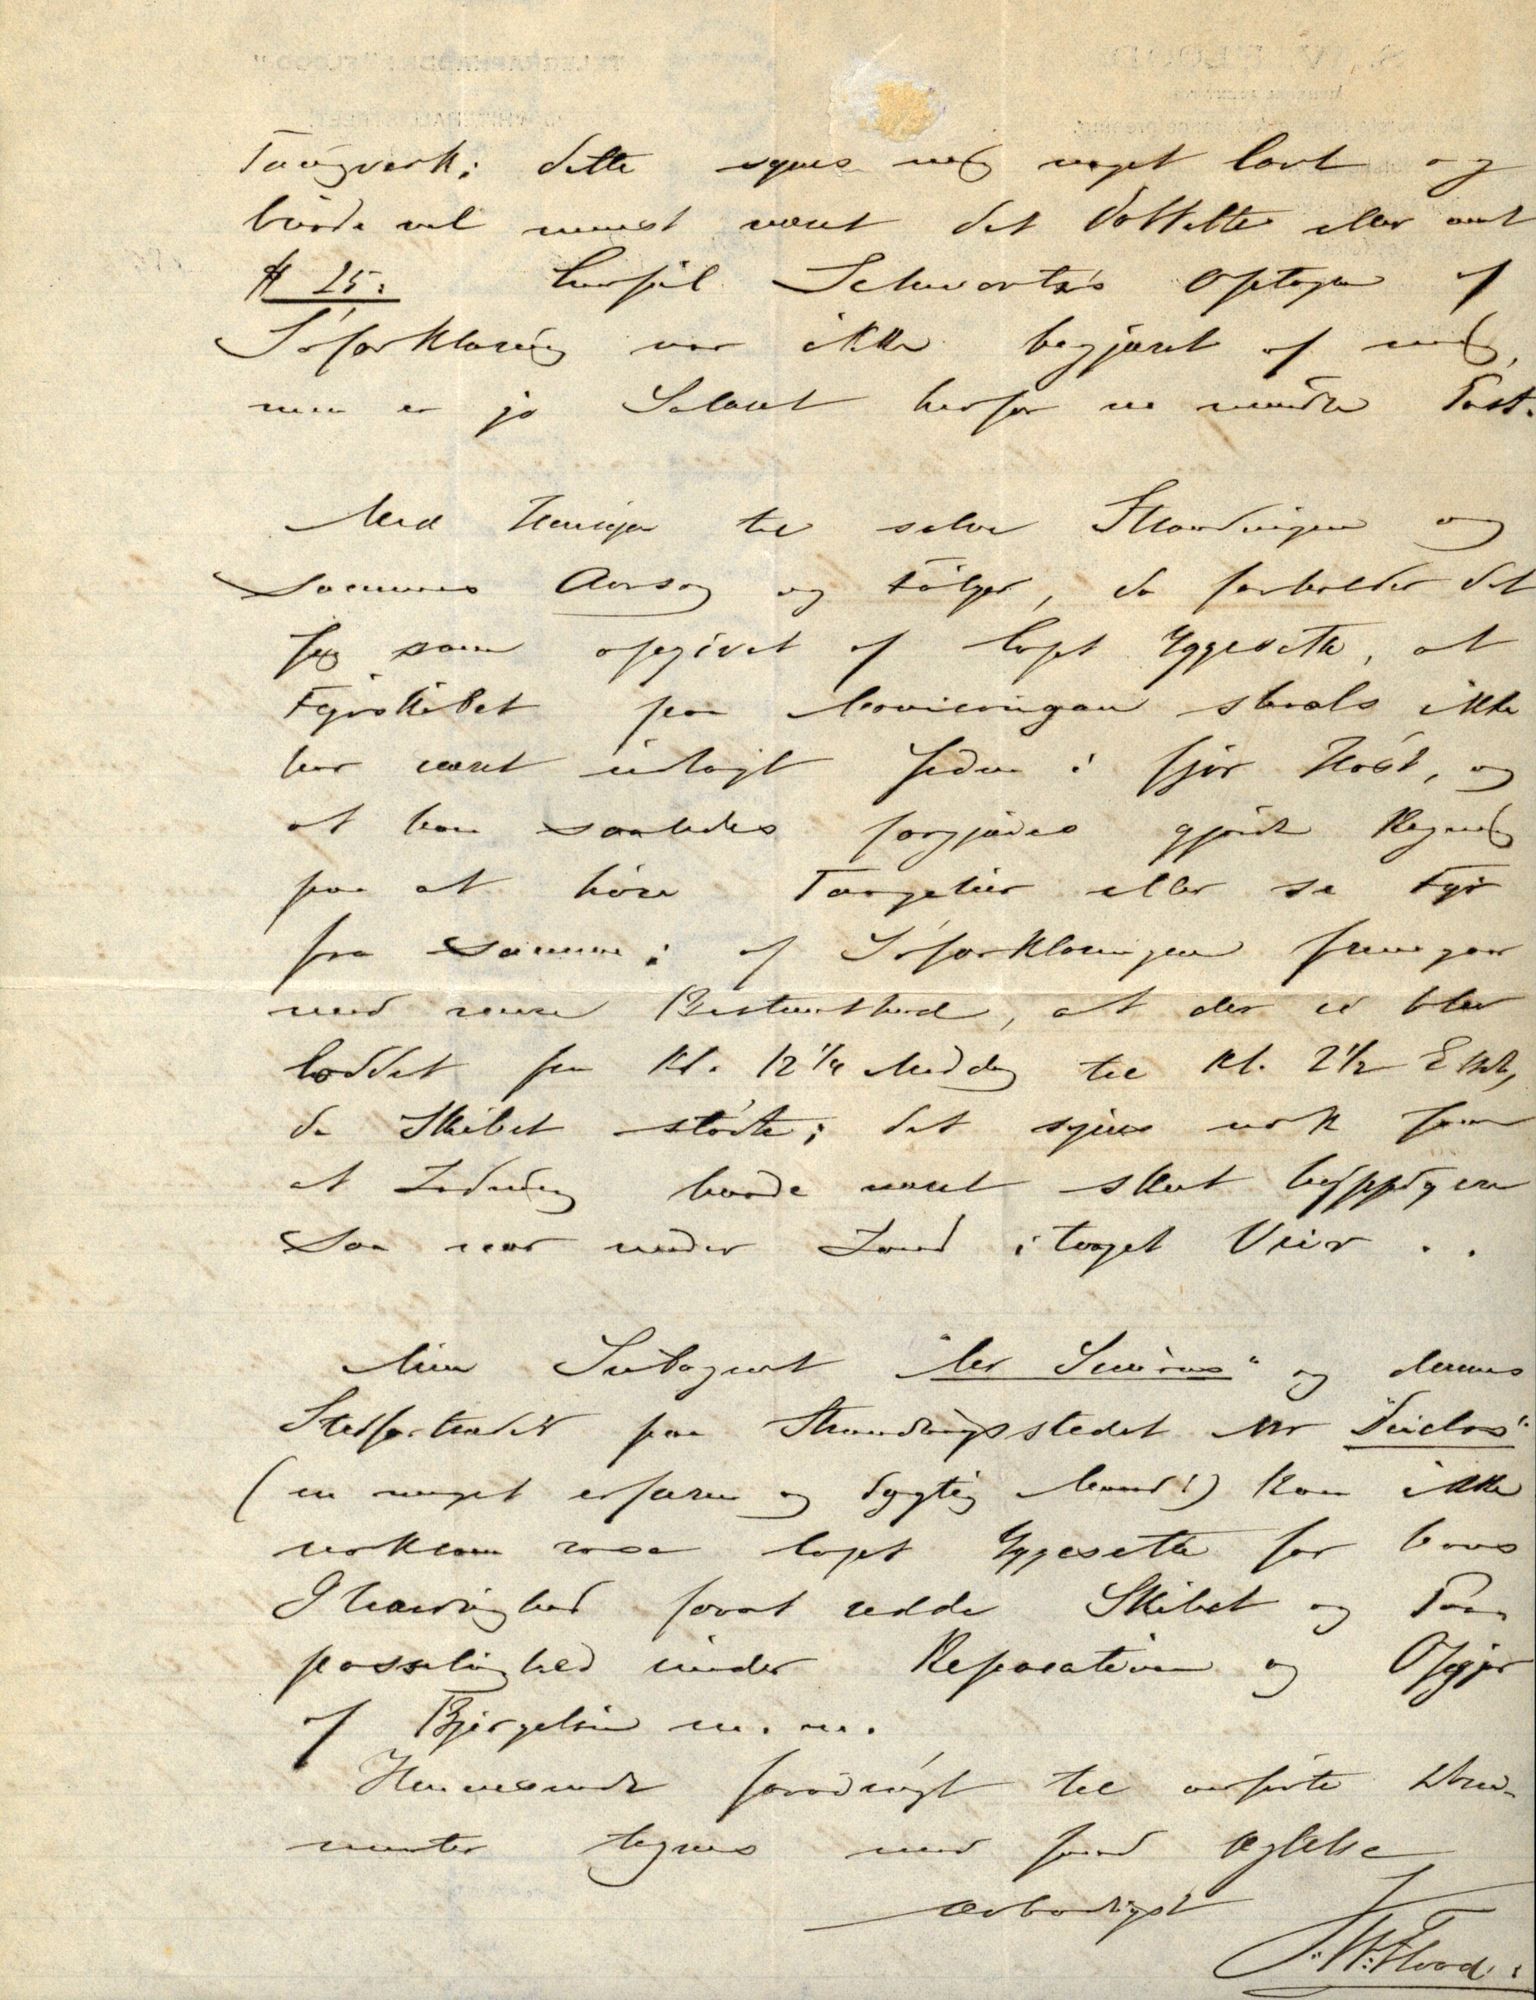 Taugverk; dette synes mig noget lavt og
burde vel mindst været det dobbelte eller omt
$ 25. Consul Schwartz's Optagen af
Søforklaring var ikke begjæret af mig,
men er jo Salæret herfor en mindre Post.
Med Hensyn til selve Strandingen og
Sammes Aarsag og Følger, da forholder det
sig som opgivet af Capt Yggeseth, at
Fyrskibet paa Manicougan shoals ikke
har været udlagt siden i fjor Høst, og
at han saaledes forgjæves gjorde Regning
paa at høre Taagelur eller se Fyr
fra Samme; af Søforklaringen fremgaar
med Bestemthed, at der ei blev
loddet fra Kl. 12 1/4 Middag til Kl. 2 1/2 Eftm,
da Skibet stødte; det synes nok som
at Lodning burde været skeet hyppigere
saa nær under Land i taaget Veir . .
Min Subagent "Mr Simons" og dennes
Stedfortræder paa Strandingsstedet Mr "Duclos"
(en meget erfaren og dygtig Mand!) kan ikke
noksom rose Capt Yggeseth for hans
Ihærdighed forat redde Skibet og Paa-
passelighed under Reparationen og Opgjør
af Bjergeløn m. m.
Henvisende forøvrigt til anførte Doku-
menter tegnes med sand Agtelse
Ærbødigst
S. W. Flood.